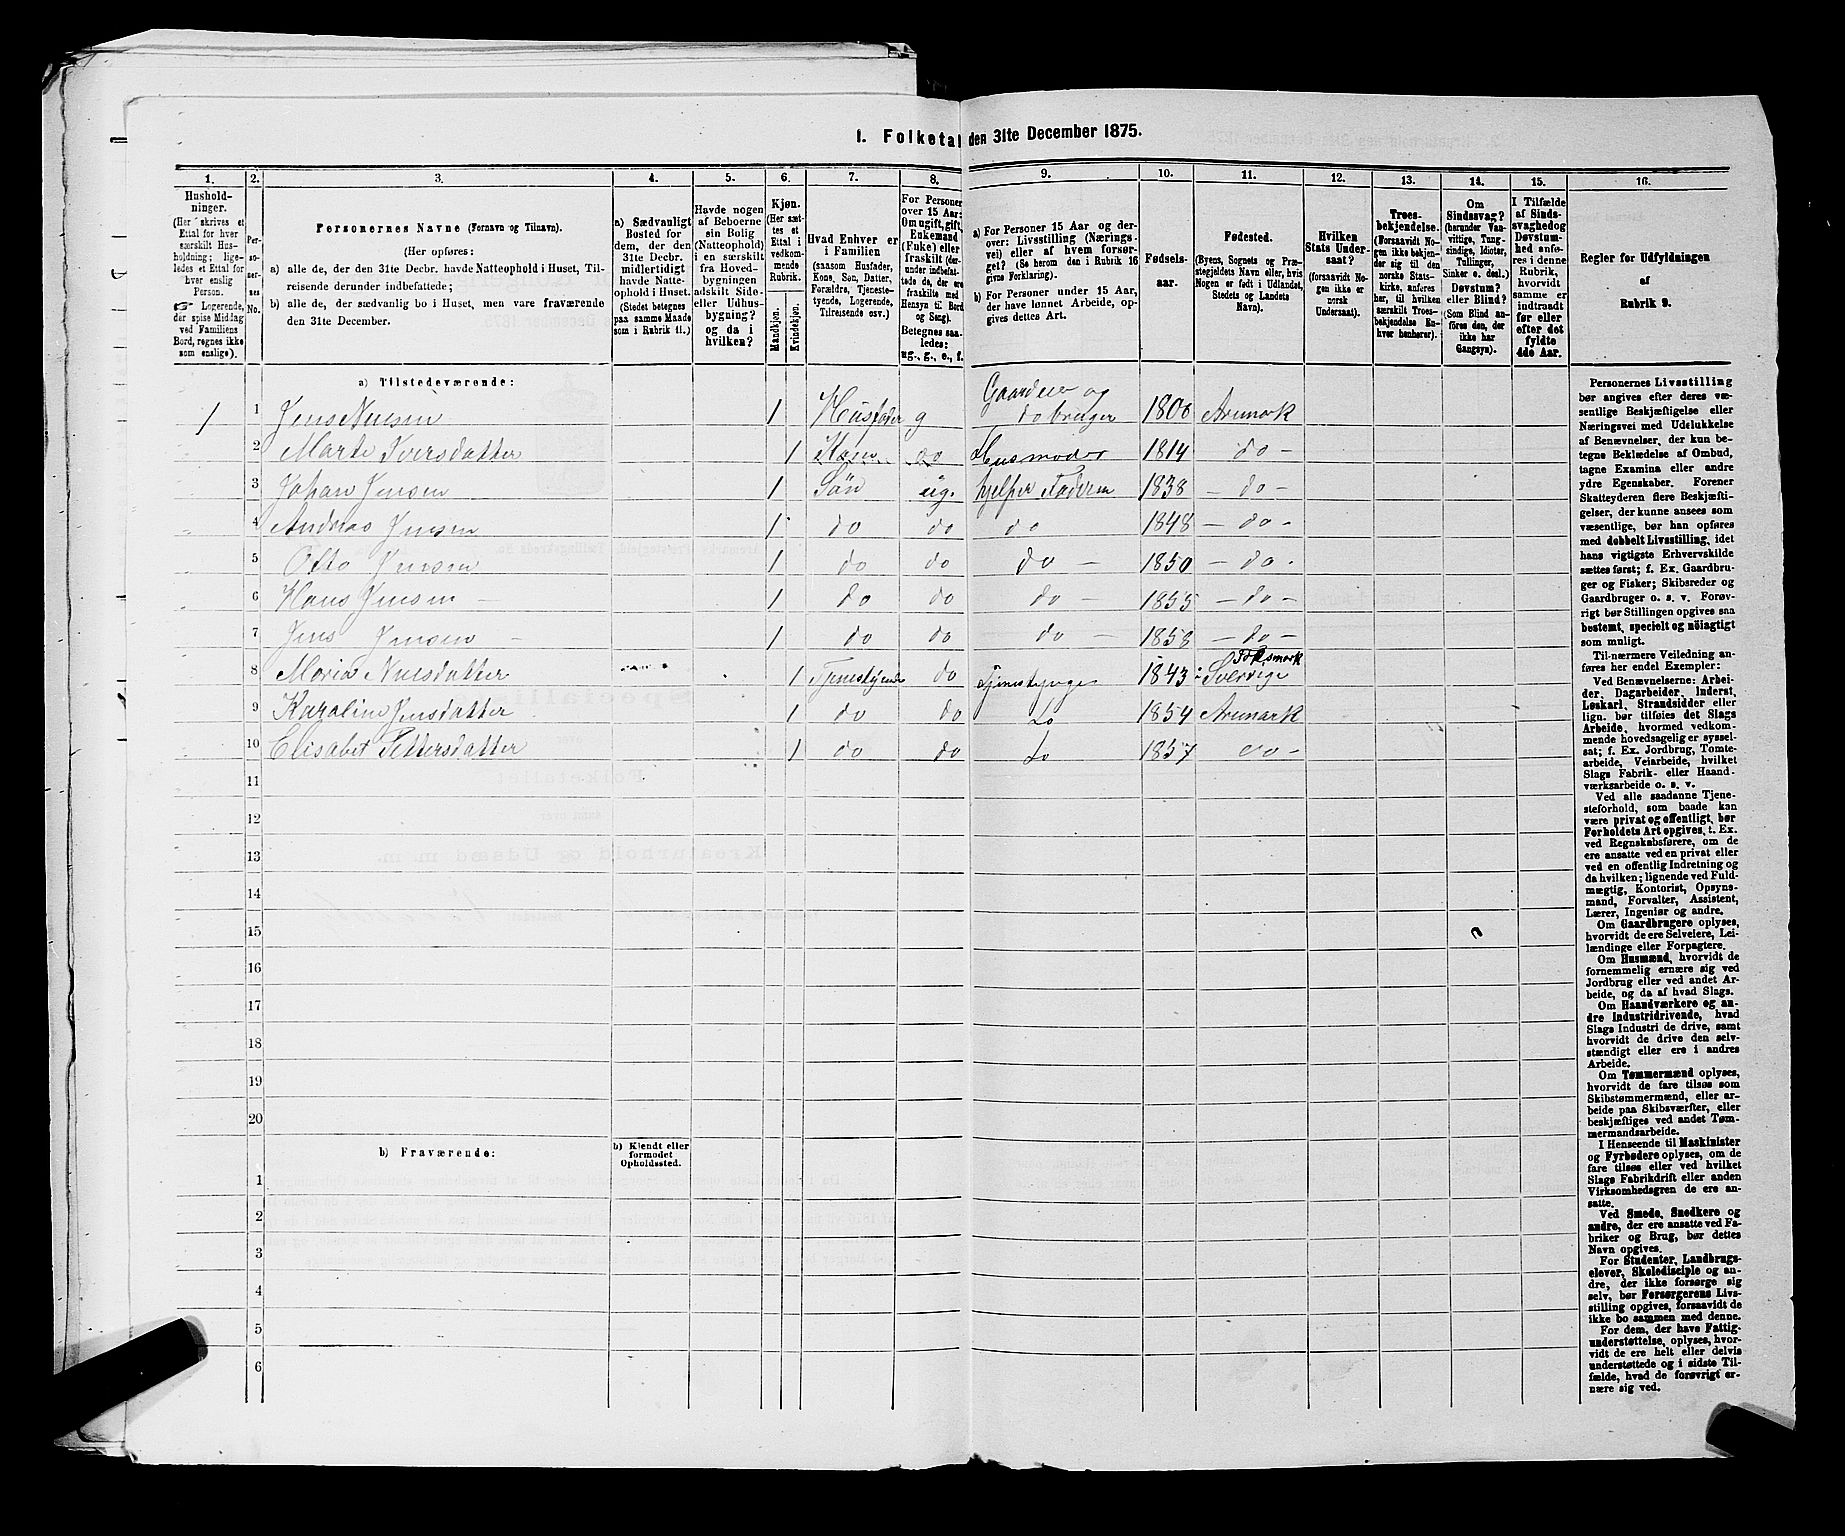 1. Folketal den 31te December 1875.
1. 2. 3. 4. 5. 6. 7. 8. 9. 10. 11. 12. 13. 14. 15. 16.
Hushold-
ninger.
(Her skrives et
Ettal for hver
særskilt Hus-
holdning; lige-
ledes et Ettal for
hver enslig
Person.
☞ Logerende,
der spise Middag
ved Familiens
Bord, regnes ikke
som enslige).
Per-
soner-
nes
No.
Personernes Navne (Fornavn og Tilnavn).
(Her opføres:
a) alle de, der den 31te Decbr. havde Natteophold i Huset, Til-
reisende derunder indbefattede;
b) alle de, der sædvanlig bo i Huset, men vare fraværende
den 31te December.
a) Sædvanligt
Bosted for
dem, der den
31te Decbr.
midlertidigt
havde Natte-
ophold i Huset.
(Stedet betegnes
paa samme Maade
som i Rubrik 11.)
Havde nogen
af Beboerne
sin Bolig
(Natteophold)
i en særskilt
fra Hoved-
bygningen
adskilt Side-
eller Udhus-
bygning?
og da i
hvilken?
Kjøn.
(Her sæt-
tes et
Ettal i
vedkom-
mende
Rubrik.
Mandkjøn.
Kvindekjøn.
Hvad Enhver er
i Familien
(saasom Husfader,
Kone, Søn, Datter,
Forældre, Tjeneste-
tyende, Logerende,
Tilreisende osv.)
For Personer
over 15 Aar:
Om ugift, gift,
Enkemand
(Enke) eller
fraskilt (der-
under indbefat-
tede de, der ere
fraskilte med
Hensyn til Bord
og Seng).
Betegnes saa-
ledes:
ug., g., e., f.
a) For Personer 15 Aar og der-
over: Livsstilling (Nærings-
vei) eller af hvem forsør-
get? (Se herom den i Rubrik 16
givne Forklaring).
b) For Personer under 15 Aar,
der have lønnet Arbeide, op-
gives dettes Art.
Fødsels-
aar.
Fødested.
(Byens, Sognets og Præ-
stegjeldets Navn eller, hvis
Nogen er født i Udlandet,
Stedets og Landets
Navn).
Hvilken
Stats Under-
saat?
(forsaavidt No-
gen ikke er
norsk
Undersaat).
Troes-
bekjendelse.
(Forsaavidt No-
gen ikke bekjen-
der sig til den
norske Stats-
kirke, anføres
her, til hvilken
særskilt Troes-
bekjendelse En-
hver henhører).
Om
Sindssvag?
(herunder Van-
vittige, Tung-
sindige, Idioter,
Tullinger,
Sinker o. desl.)
Døvstum?
eller Blind?
(Som Blind an-
føres den, der
ikke har
Gangsyn).
I Tilfælde
af Sinds-
svaghed og
Døvstum-
hed anfø-
res i denne
Rubrik,
hvorvidt
samme er
indtraadt
før eller
efter det
fyldte
4de Aar.
Regler for Udfyldningen
af
Rubrik 9.
a) Tilstedeværende:
1 1 1 Husfader g Gaardeier og do bruger Aremark
2 Marte Iversdatter 1 Kone do Husmoder 1814 do
3 Johan Jensen 1 Søn ug. hjelper Faderen 1838 - do -
4 Andreas Jensen 1 do do do 1848 - do -
5 Otto Jensen 1 do do do - 1850 - do -
6 Hans Jensen - 1 do do do - 1855 - do -
7 Jens Jensen - 1 do do do - 1858 - do -
8 Maria Nilsdatter 1 Tjenestetyende do 1843 Sverrige
9 Karoline Jensdatter 1 do do do 1854 Aremark
10 Elisabet Pettersdatter 1 do do do 1857 do -
11
12
13
14
15
16
17
18
19
20
b) Fraværende:
b) Kjendt eller
formodet
Opholdssted.
1
2
3
4
5
6
Personernes Livsstilling
bør angives efter deres væ-
sentlige Beskjæftigelse eller
Næringsvei med Udelukkelse
af Benævnelser, der kun be-
tegne Beklædelse af Ombud,
tagne Examina eller andre
ydre Egenskaber. Forener
Skatteyderen flere Beskjæfti-
gelser, der kunne ansees som
væsentlige, bør han opføres
med dobbelt Livsstilling, idet
hans vigtigste Erhvervskilde
sættes først; f. Ex. Gaardbru-
ger og Fisker; Skibsreder og
Gaardbruger o. s. v. Forøv-
rigt bør Stillingen opgives saa
bestemt, specielt og nøiagtigt
som muligt.
Til nærmere Veiledning an-
føres her endel Exempler:
Ved Benævnelserne: Arbei-
der, Dagarbeider, Inderst,
Løskarl, Strandsidder eller
lign. bør tilføies det Slags
Arbeide, hvormed vedkom-
mende hovedsagelig er syssel-
sat; f. Ex. Jordbrug, Tomte-
arbeide, Veiarbeide, hvilket
Slags Fabrik- eller Haand-
værksarbeide o. s. v.
Ved alle saadanne Tjene-
steforhold, som baade kan
være privat og offentligt, bør
Forholdets Art opgives, t. Ex.
ved Regnskabsførere, om de
ere ansatte ved en privat eller
ved en offentlig Indretning og
da hvilken; lignende ved Fuld-
mægtig, Kontorist, Opsyns-
mand, Forvalter, Assistent,
Lærer, Ingeniør og andre.
Om Gaardbrugere oplyses,
hvorvidt de ere Selveiere, Lei-
lændinge eller Forpagtere.
Om Husmænd, hvorvidt de
fornemmelig ernære sig ved
Jordbrug eller ved andet Ar-
beide, og da af hvad Slags.
Om Haandværkere og an-
dre Industridrivende, hvad
Slags Industri de drive, samt
hvorvidt de drive den selv-
stændigt eller ere i andres
Arbeide.
Om Tømmermænd oplyses,
hvorvidt de fare tilsøs som
Skibstømmermænd, eller ar-
beide paa Skibsværfter, eller
beskjæftiges ved andet Tøm-
mermandsarbeide.
I Henseende til Maskinister
og Fyrbødere oplyses, om de
fare tilsøs eller ved hvilket
Slags Fabrikdrift eller anden
Virksomhedsgren de ere an-
satte.
Ved Smede, Snedkere og
andre, der ere ansatte ved Fa-
briker og Brug, bør dettes
Navn opgives.
For Studenter, Landbrugs-
elever, Skoledisciple og an-
dre, der ikke forsørge sig
selv, bør Forsørgerens Livs-
stilling opgives, forsaavidt de
ikke bo sammen med denne.
For dem, der have Fattig-
understøttelse, oplyses, hvor-
vidt de ere helt eller delvis
understøttede og i sidste Til-
fælde, hvad de forøvrigt er-
nære sig ved.